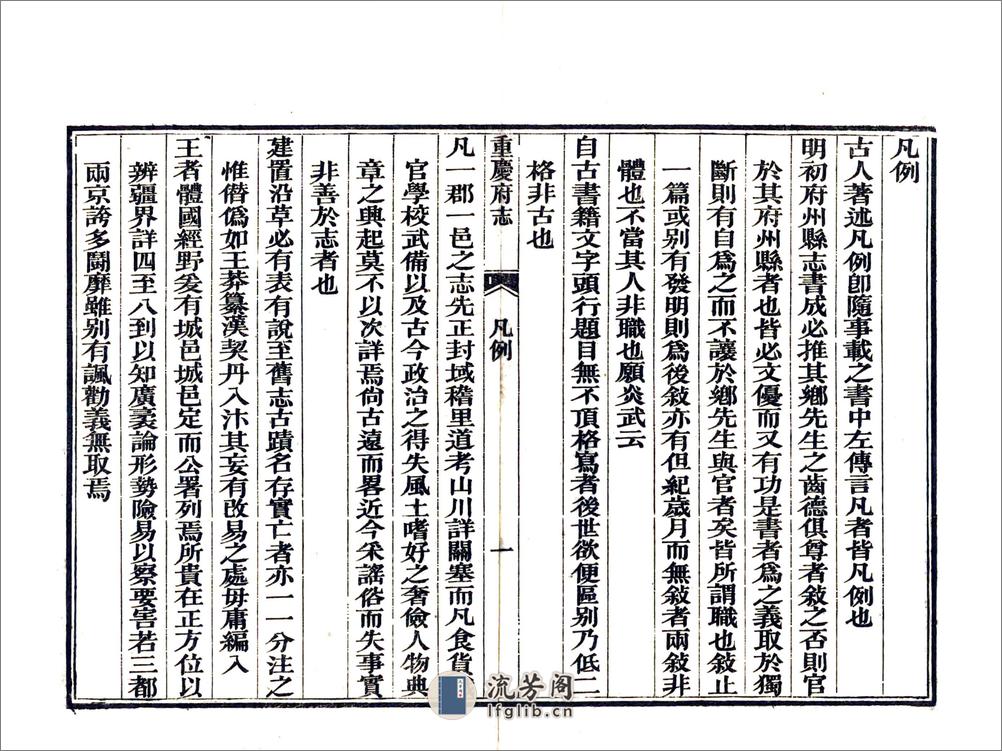 凡例
古人著述凡例卽隨事載之書中左傳言凡者皆凡例也
明初府州縣志書成必推其鄉先生之齒德俱尊者敍之否則官
於其府州縣者也皆必文優而又有功是書者爲之義取於獨
斷則有自爲之而不讓於鄉先生與官者矣皆所謂職也敍止
一篇或别有發明則爲後敍亦有但紀歲月而無敍者兩敍非
體也不當其人非職也願炎武云
自古書籍文字頭行題目無不頂格寫者後世欲便區别乃低二
格非古也
重慶府志
凡例
一
凡一郡一邑之志先正封域稽里道考山川詳關塞而凡食貨
官學校武備以及古今政治之得失風土嗜好之奢儉人物典
章之興起莫不以次詳焉尙古遠而畧近今采謠俗而失事實
非善於志者也
建置沿革必有表有說至舊志古蹟名存實亡者亦一一分注之
惟僭僞如王莽纂漢契丹入汴其妄有改易之處毋庸編入
王者體國經野爰有城邑城邑定而公署列焉所貴在正方位以
辨疆界詳四至八到以知廣袤論形勢險易以察要害若三都
兩京誇多鬭靡雖别有諷勸義無取焉
流芳阁
lfglib.cn